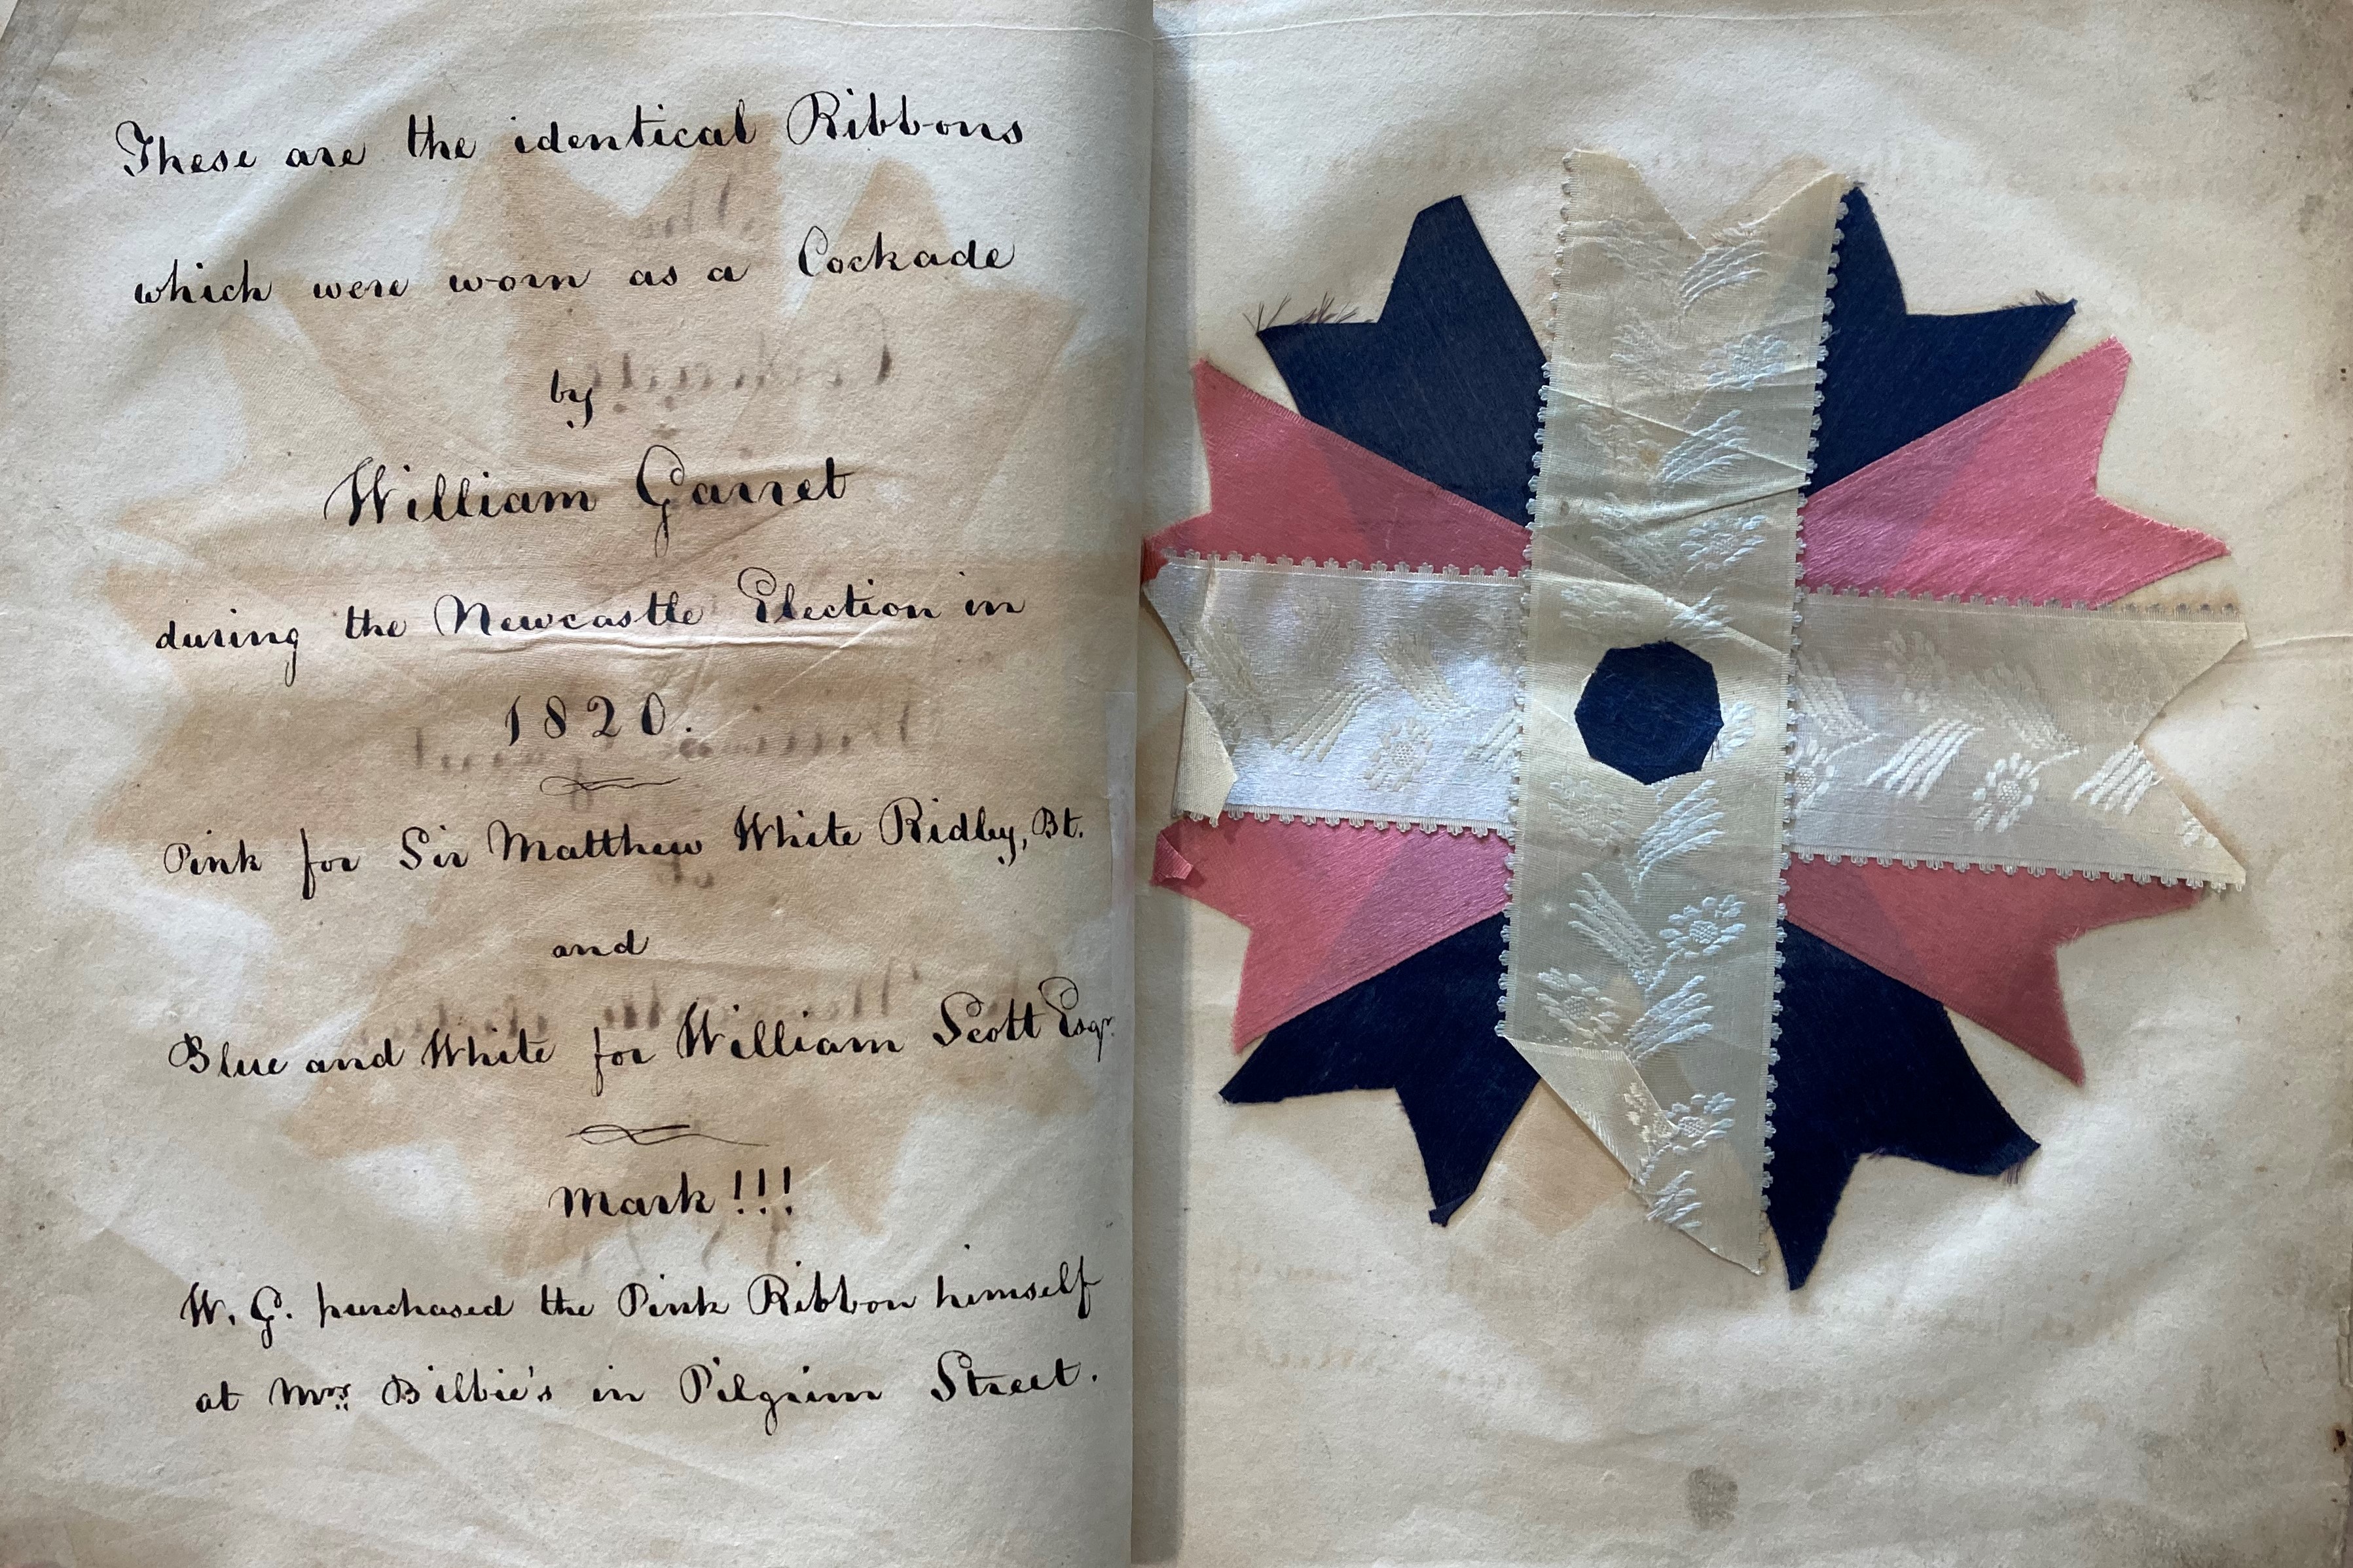 These are the identical Ribbons
which were worn as a Cockade
by
William Garret
during the Newcastle Election in
1820.
Pink for Sir Matthew White Ridley, Bt.
and
Blue and White for William Scott Esqr.
Mark!!!
W. G. purchased the Pink Ribbon himself
at Mrs. Bilbie's in Pilgrim Street.